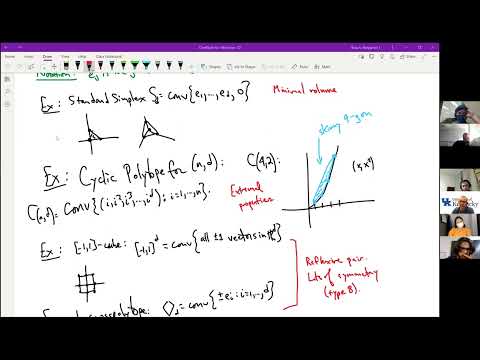 Notation:
Ex: Standard Simplex Sd = conv{e1,...,ed, 0}
Minimal volume
skinny 4-gon
Ex: Cyclic Polytope for (n,d):
C(4,2):
(x, x²)
C(n,d) = conv{(i, i², i³, ..., i^d) : i=1,...,n}.
External
properties
Ex: [-1,1]-cube: [-1,1]^d = conv{all ±1 vectors in ℝ^d}
Reflexive pair.
Lots of symmetry
(type B).
crosspolytope: ◇d = conv{±ei : i=1,...,d}